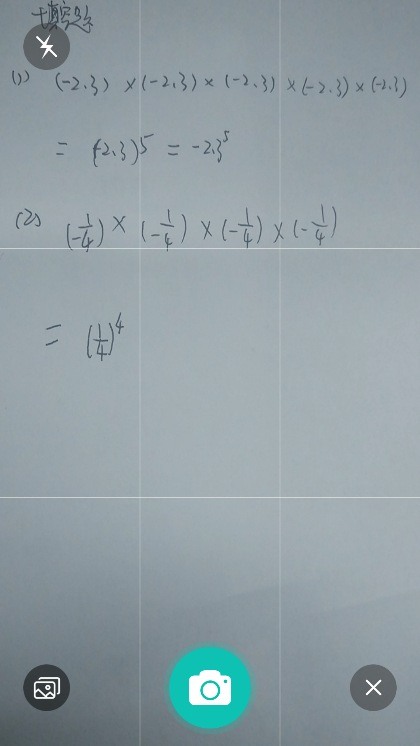 填空题
(1) (-2.3) × (-2.3) × (-2.3) × (-2.3) × (-2.3)
= (-2.3)^5 = -2.3^5
(2) (-1/4) × (-1/4) × (-1/4) × (-1/4)
= (1/4)^4